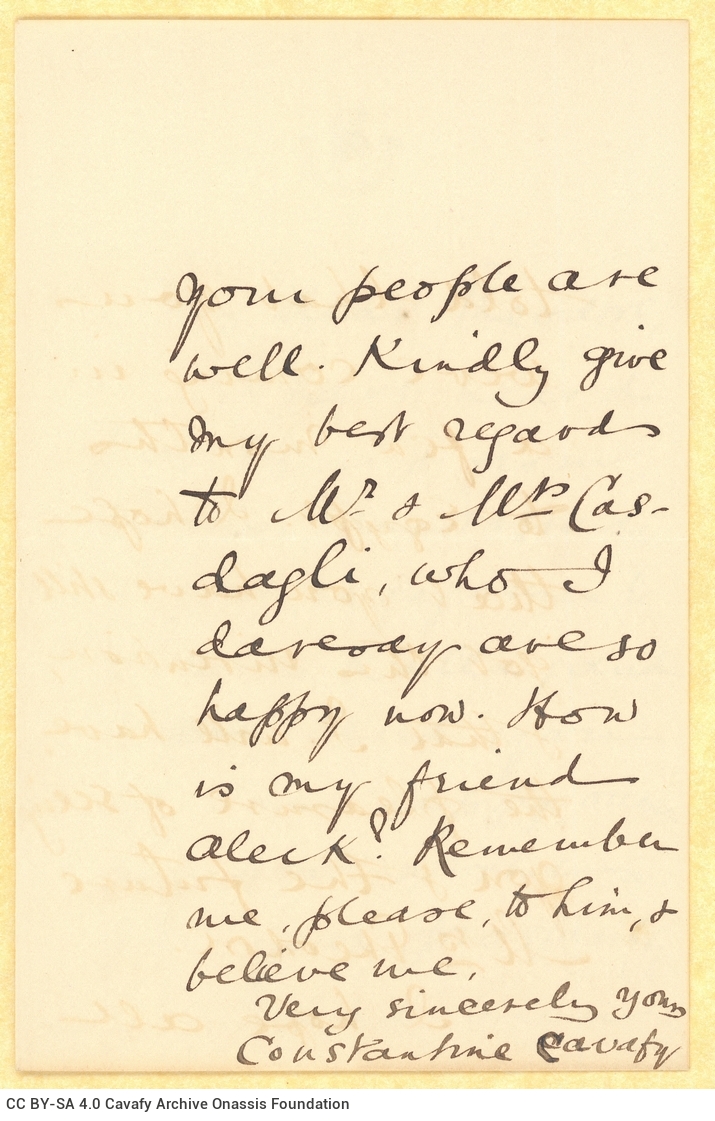 your people are
well. Kindly give
my best regards
to Mr. & Mrs Cas-
dagli, who I
daresay are so
happy now. How
is my friend
Aleck? Remember
me, please, to him, &
believe me,
Very sincerely yours
Constantine Cavafy
CC BY-SA 4.0 Cavafy Archive Onassis Foundation